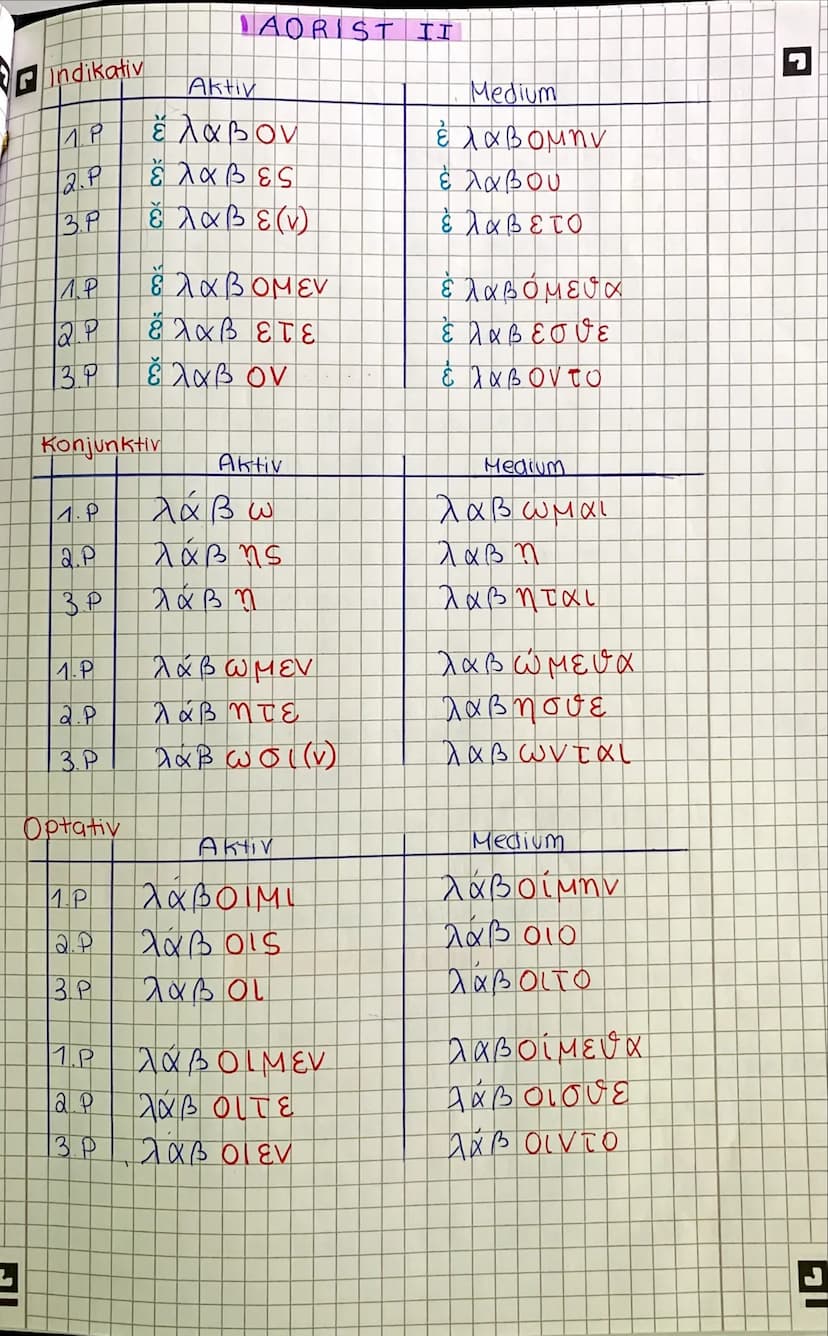 AORIST II
Indikativ
Aktiv Medium
1.P ἔ λαβ ον ἐ λαβομην
2.P ἔ λαβ ες ἐ λαβου
3.P ἔ λαβ ε(ν) ἐ λαβετο
1.P ἔ λαβομεν ἐ λαβόμεϑα
2.P ἔ λαβ ετε ἐ λαβεσϑε
3.P ἔ λαβ ον ἐ λαβοντο
Konjunktiv
Aktiv Medium
1.P λάβ ω λαβ ωμαι
2.P λάβ ης λαβ η
3.P λάβ η λαβ ηται
1.P λάβ ωμεν λαβ ώμεϑα
2.P λάβ ητε λαβ ησϑε
3.P λάβ ωσι(ν) λαβ ωνται
Optativ
Aktiv Medium
1.P λάβοιμι λάβοίμην
2.P λάβ οις λάβ οιο
3.P λάβ οι λάβ οιτο
1.P λάβ οιμεν λαβοίμεϑα
2.P λάβ οιτε λάβ οισϑε
3.P λάβ οιεν λάβ οιντο